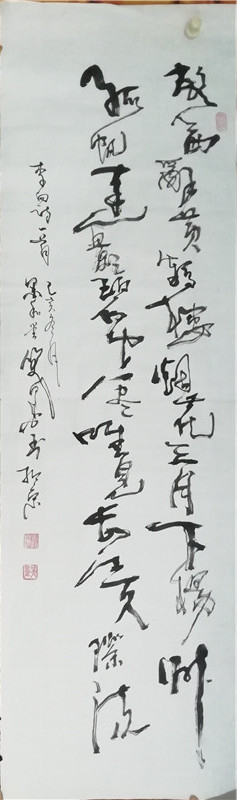 故人西辭黃鶴樓煙花三月下揚州
孤帆遠影碧空盡唯見長江天際流
李白詩一首
己亥冬月